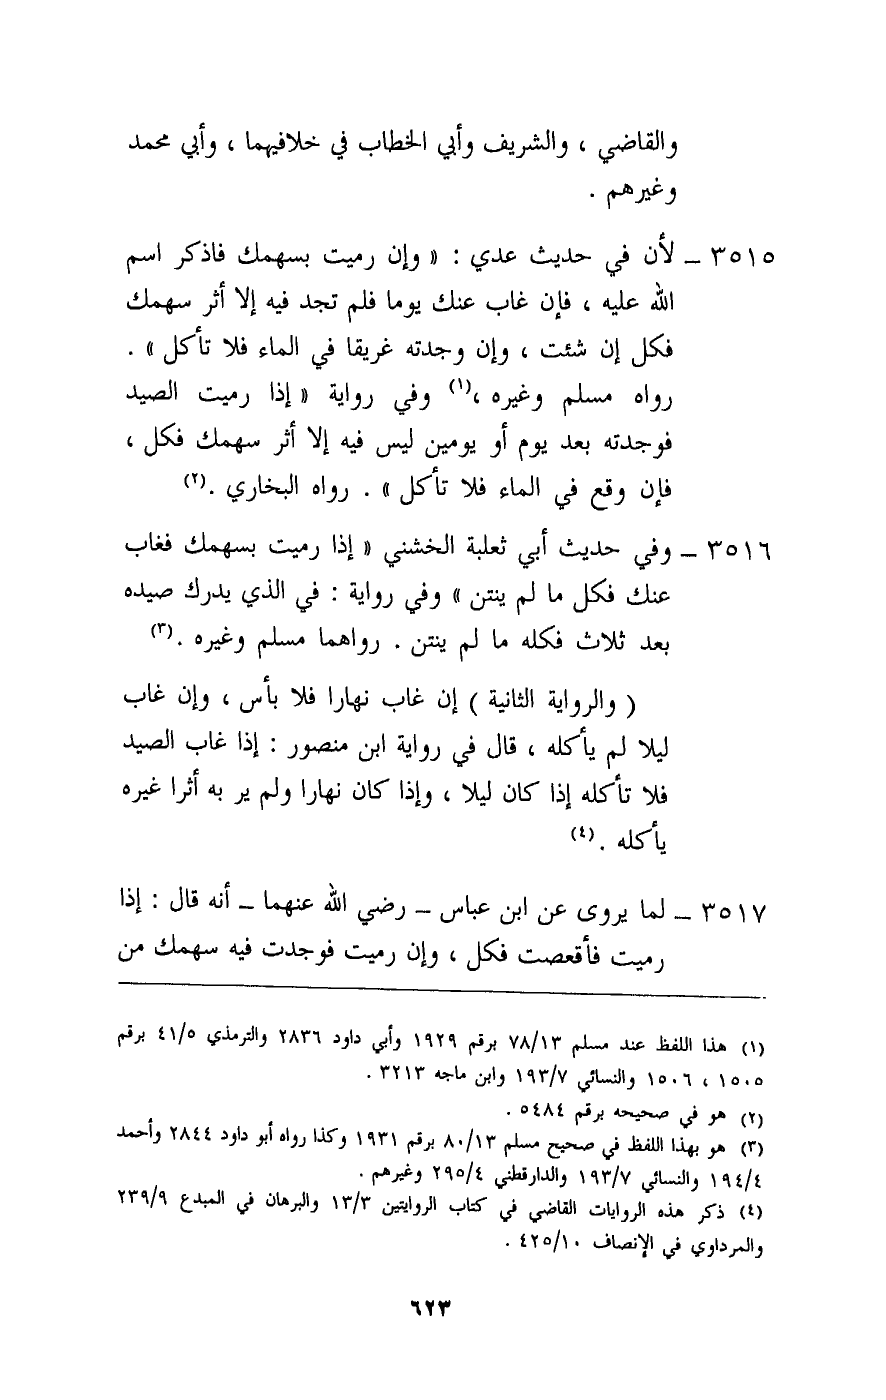 والقاضي ، والشريف وأبي الخطاب في خلافيهما ، وأبي محمد
وغيرهم .
٣٥١٥ – لأن في حديث عدي : « وإن رميت بسهمك فاذكر اسم
الله عليه ، فإن غاب عنك يوما فلم تجد فيه إلا أثر سهمك
فكل إن شئت ، وإن وجدته غريقا في الماء فلا تأكل » .
رواه مسلم وغيره ،(١) وفي رواية « إذا رميت الصيد
فوجدته بعد يوم أو يومين ليس فيه إلا أثر سهمك فكل ،
فإن وقع في الماء فلا تأكل » . رواه البخاري .(٢)
٣٥١٦ – وفي حديث أبي ثعلبة الخشني « إذا رميت بسهمك فغاب
عنك فكل ما لم ينتن » وفي رواية : في الذي يدرك صيده
بعد ثلاث فكله ما لم ينتن . رواهما مسلم وغيره .(٣)
( والرواية الثانية ) إن غاب نهارا فلا بأس ، وإن غاب
ليلا لم يأكله ، قال في رواية ابن منصور : إذا غاب الصيد
فلا تأكله إذا كان ليلا ، وإذا كان نهارا ولم ير به أثرا غيره
يأكله .(٤)
٣٥١٧ – لما يروى عن ابن عباس – رضي الله عنهما – أنه قال : إذا
رميت فأقعصت فكل ، وإن رميت فوجدت فيه سهمك من
(١) هذا اللفظ عند مسلم ٧٨/١٣ برقم ١٩٢٩ وأبي داود ٢٨٣٦ والترمذي ٤١/٥ برقم
١٥٠٥ ، ١٥٠٦ والنسائي ١٩٣/٧ وابن ماجه ٣٢١٣ .
(٢) هو في صحيحه برقم ٥٤٨٤ .
(٣) هو بهذا اللفظ في صحيح مسلم ٨٠/١٣ برقم ١٩٣١ وكذا رواه أبو داود ٢٨٤٤ وأحمد
١٩٤/٤ والنسائي ١٩٣/٧ والدارقطني ٢٩٥/٤ وغيرهم .
(٤) ذكر هذه الروايات القاضي في كتاب الروايتين ١٣/٣ والبرهان في المبدع ٢٣٩/٩
والمرداوي في الإنصاف ٤٢٥/١٠ .
٦٢٣